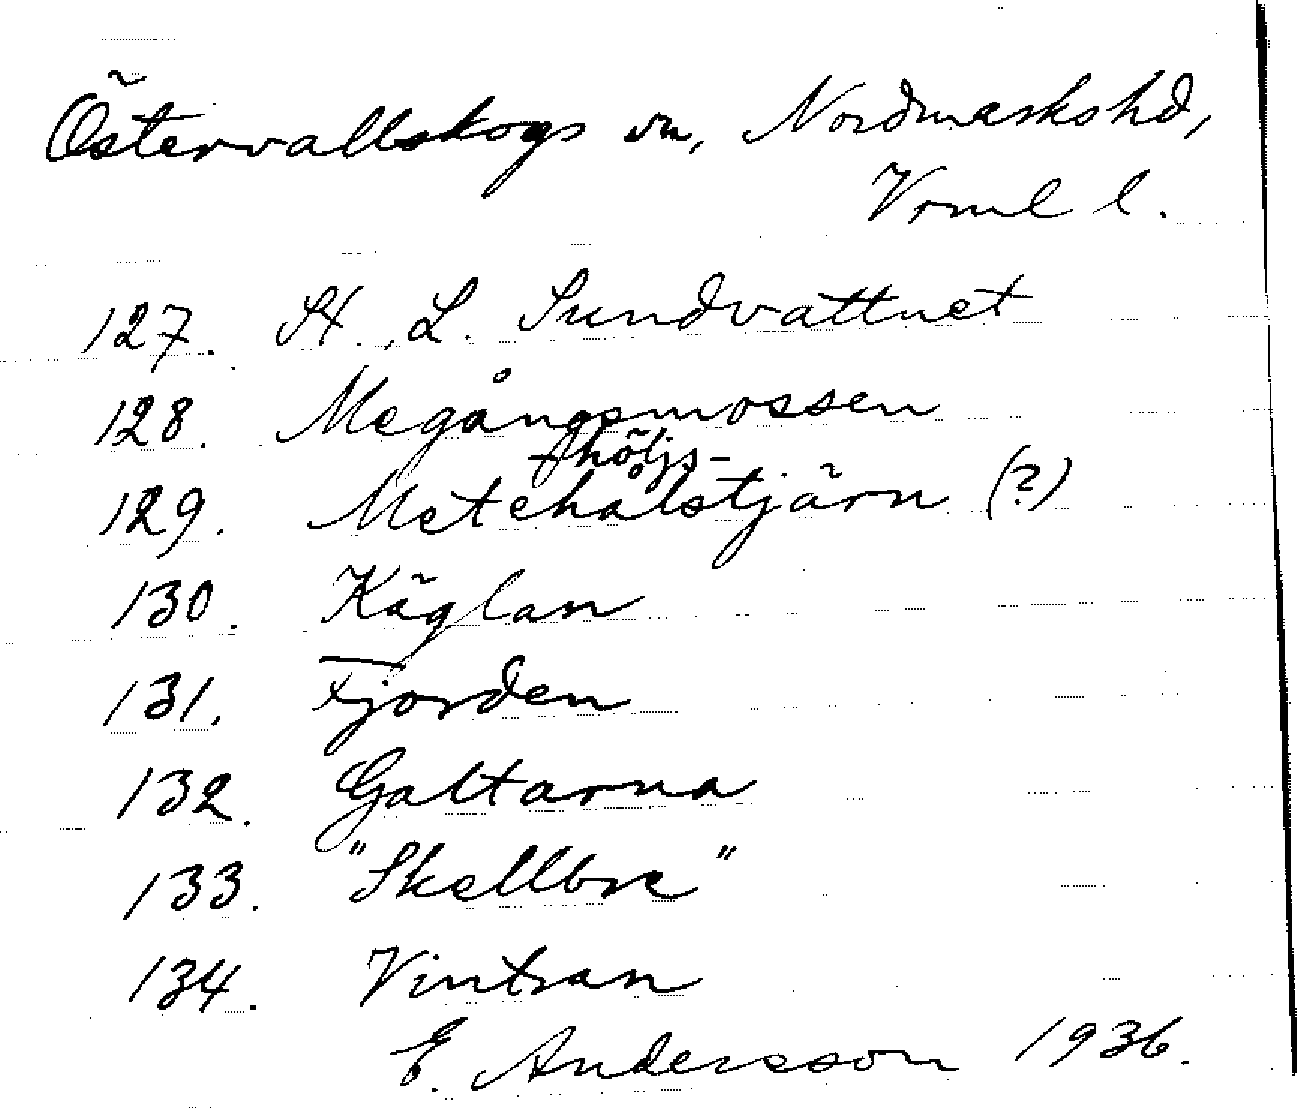 Östervallskogs sn, Nordmarkshd,
Vrml l.
127. St., L. Sundvattnet
128. Megångsmossen
-höljs-
129. Metehålstjärn (?)
130. Käglan
131. Fjorden
132. Galtarna
133. "Skellbre"
134. Vintran
E. Andersson 1936.